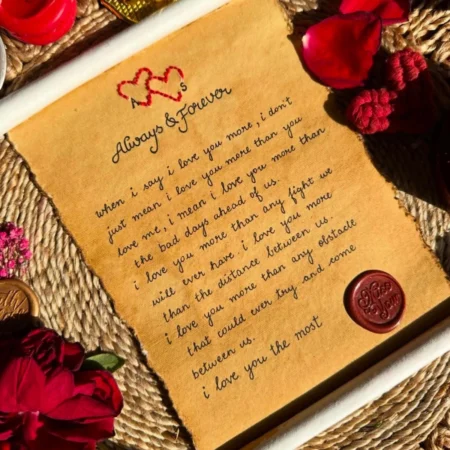 A S
Always & Forever
when i say i love you more, i don't
just mean i love you more than you
love me, i mean i love you more than
the bad days ahead of us.
i love you more than any fight we
will ever have. i love you more
than the distance between us.
i love you more than any obstacle
that could ever try and come
between us.
i love you the most